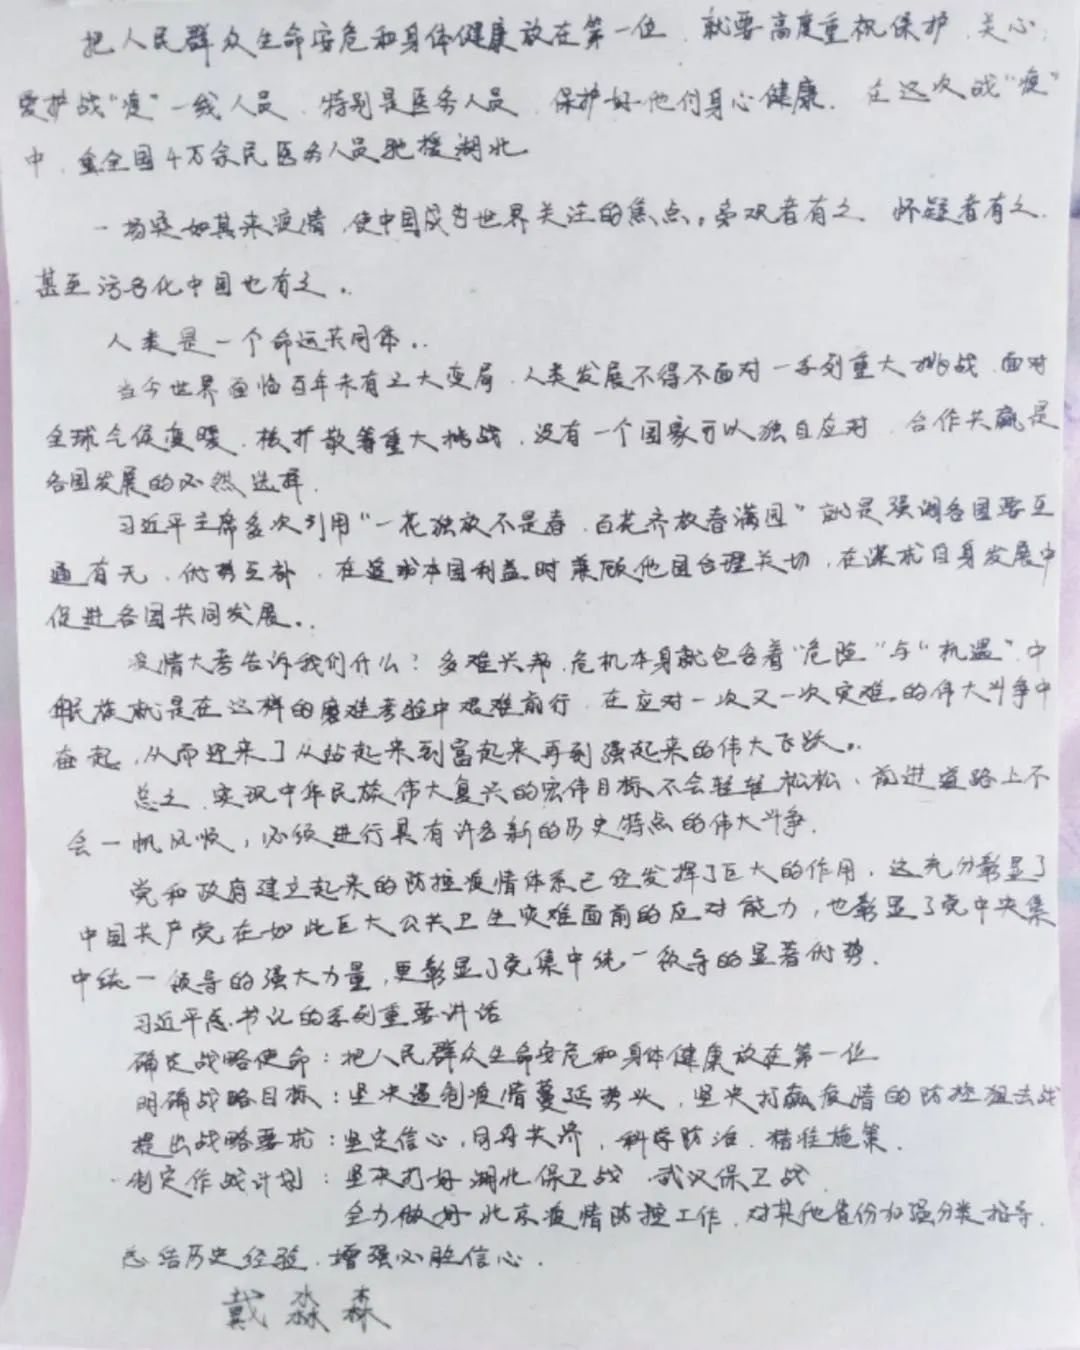 把人民群众生命安危和身体健康放在第一位，就要高度重视保护、关心、
爱护战“疫”一线人员，特别是医务人员，保护好他们身心健康。在这次战“疫”
中，全国4万余民医务人员驰援湖北
一场突如其来疫情，使中国成为世界关注的焦点。旁观者有之，怀疑者有之，
甚至污名化中国也有之。
人类是一个命运共同体。
当今世界面临百年未有之大变局，人类发展不得不面对一系列重大挑战，面对
全球气候变暖、核扩散等重大挑战，没有一个国家可以独自应对，合作共赢是
各国发展的必然选择。
习近平主席多次引用“一花独放不是春，百花齐放春满园”就是强调各国要互
通有无，优势互补，在追求本国利益时兼顾他国合理关切，在谋求自身发展中
促进各国共同发展。
疫情大考告诉我们什么？多难兴邦，危机本身就包含着“危险”与“机遇”，中
华民族就是在这样的磨难考验中艰难前行，在应对一次又一次灾难的伟大斗争中
奋起，从而迎来了从站起来到富起来再到强起来的伟大飞跃。
总之，实现中华民族伟大复兴的宏伟目标不会轻轻松松，前进道路上不
会一帆风顺，必须进行具有许多新的历史特点的伟大斗争。
党和政府建立起来的防控疫情体系已经发挥了巨大的作用，这充分彰显了
中国共产党在如此巨大公共卫生灾难面前的应对能力，也彰显了党中央集
中统一领导的强大力量，更彰显了党集中统一领导的显著优势。
习近平总书记的系列重要讲话
确定战略使命：把人民群众生命安危和身体健康放在第一位
明确战略目标：坚决遏制疫情蔓延势头，坚决打赢疫情的防控狙击战
提出战略要求：坚定信心，同舟共济，科学防治，精准施策。
制定作战计划：坚决打好湖北保卫战，武汉保卫战
全力做好北京疫情防控工作，对其他省份加强分类指导。
总结历史经验，增强必胜信心。
戴淼森